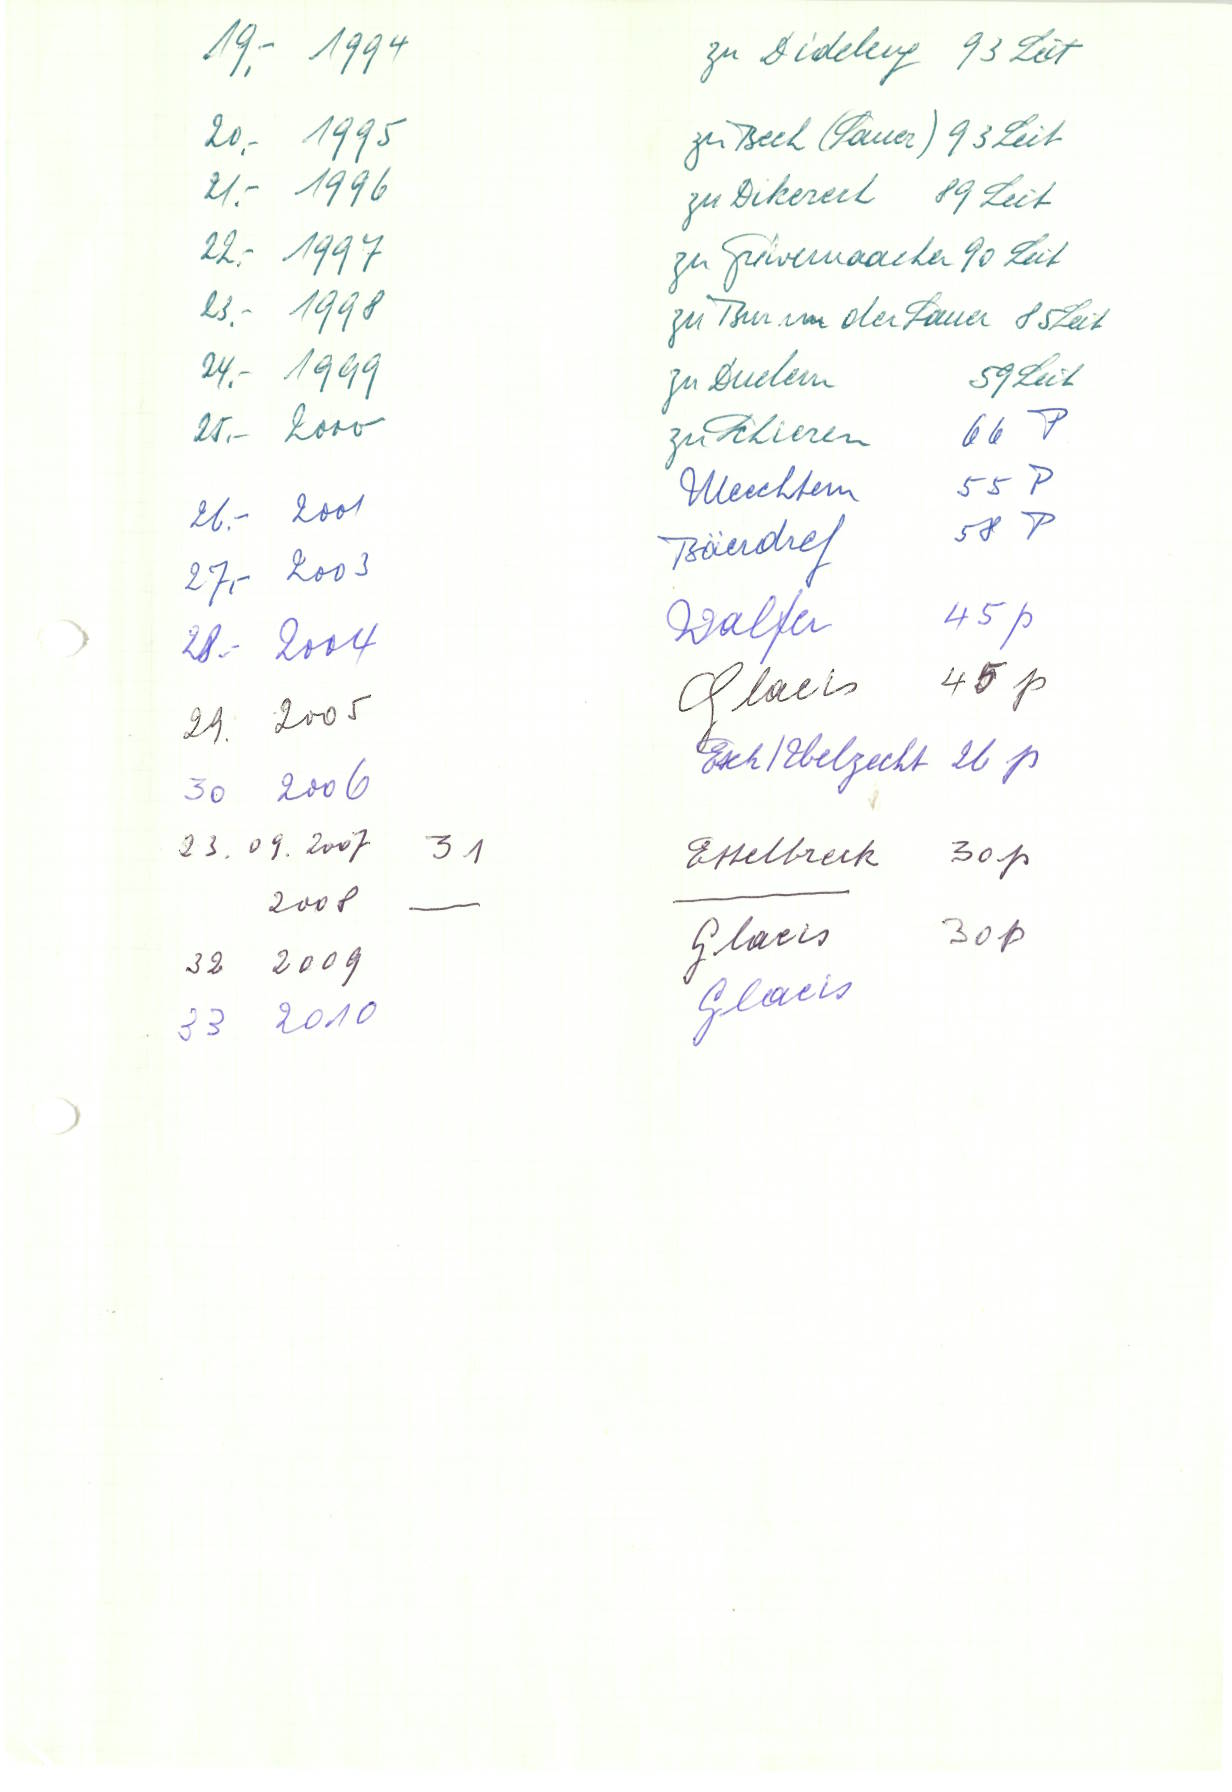 19.- 1994 zu Dideleng 93 Leit
20.- 1995 zu Bech (Sauer) 93 Leit
21.- 1996 zu Dikerech 89 Leit
22.- 1997 zu Grévemaacher 90 Leit
23.- 1998 zu Buer un der Sauer 85 Leit
24.- 1999 zu Duelem 59 Leit
25.- 2000 zu Schieren 66 P
26.- 2001 Meechtem 55 P
27.- 2003 Bäerdref 58 P
28.- 2004 Walfer 45 p
29. 2005 Glacis 45 p
30 2006 Esch/Uelzecht 26 p
23.09.2007 31 Esselbreck 30p
2008 —
32 2009 Glacis 30p
33 2010 Glacis